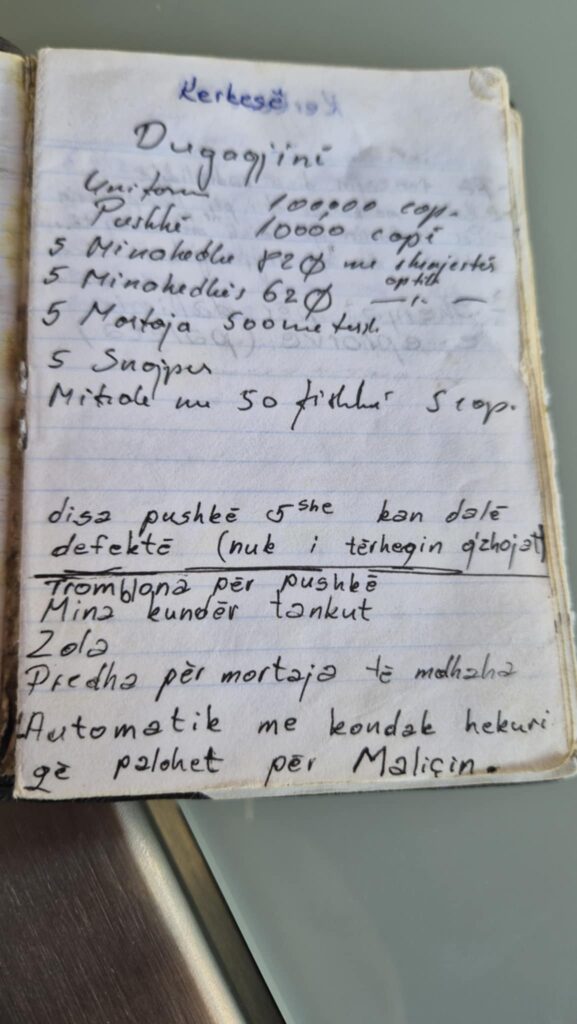 Kerkesë
Dugagjini
Uniform 100000 cop.
Pushkë 10000 copë
5 Minahedhe 82Ø me shenjestër
optik
5 Minahedhës 62Ø —"—
5 Mortaja 500 metërsh
5 Snajper
Mitrole me 50 fishkë 5 cop.
disa pushkë 5she kan dalë
defektë (nuk i tërheqin gzhojat)
Tromblona për pushkë
Mina kundër tankut
Zola
Predha për mortaja të mdhaha
Automatik me kondak hekuri
që palohet për Maliçin.